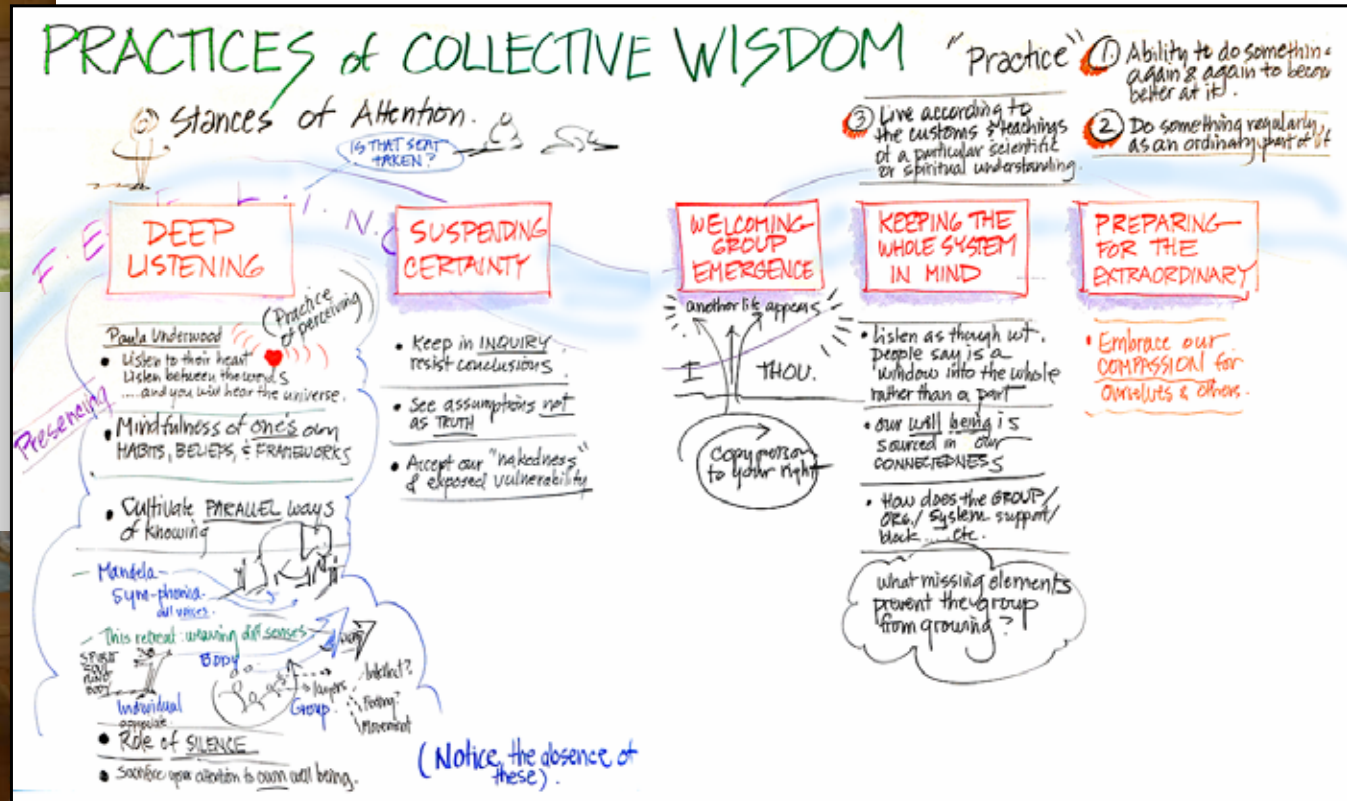 PRACTICES of COLLECTIVE WISDOM
"Practice"
① Ability to do somethin
again & again to becom
better at it.
② Do something regularly,
as an ordinary part of lif
③ Live according to
the customs & teachings
of a particular scientific
or spiritual understanding.
Stances of Attention.
IS THAT SEAT
TAKEN?
F.E.E.L.I.N.G
DEEP
LISTENING
(Practice
of perceiving)
Paula Underwood
• Listen to their heart
Listen between the words
....and you will hear the universe.
Presencing
• Mindfulness of one's own
HABITS, BELIEFS, & FRAMEWORKS
• Cultivate PARALLEL ways
of knowing
- Mandela-
Sym-phonia-
diff voices.
- This retreat: weaving diff senses
SPIRIT
SOUL
MIND
BODY
Body
Individual
appreciate
Group
layers
Intellect?
Feeling?
Movement
• Role of SILENCE
• Sacrifice your attention to own well being.
SUSPENDING
CERTAINTY
• Keep in INQUIRY
resist conclusions.
• See assumptions not
as TRUTH
• Accept our "nakedness"
& exposed vulnerability
(Notice the absence of
these).
WELCOMING
GROUP
EMERGENCE
another life appears
I THOU.
Copy person
to your right
KEEPING THE
WHOLE SYSTEM
IN MIND
• Listen as though wt.
people say is a
window into the whole
rather than a part
• our well being is
sourced in our
CONNECTEDNESS
• How does the GROUP/
ORG./ System support/
block.....etc.
what missing elements
prevent the group
from growing?
PREPARING
FOR THE
EXTRAORDINARY
• Embrace our
COMPASSION for
Ourselves & others.